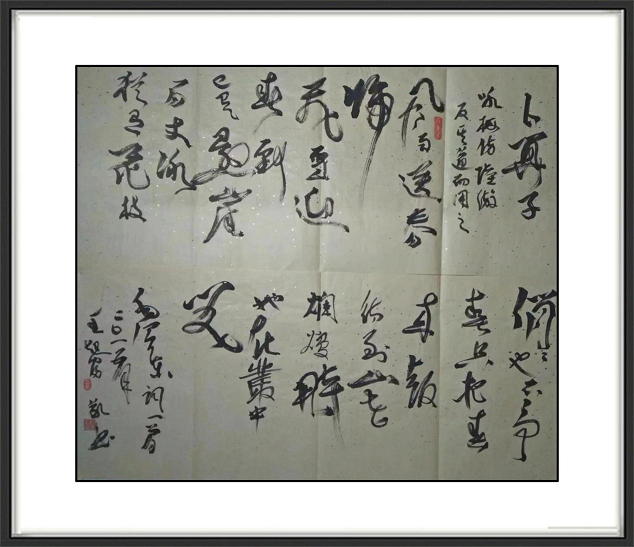 卜算子
咏梅仿陸游
反其道而用之
风雨送春
归
飛雪迎
春到
已是悬崖
百丈冰
犹有花枝
俏俏也不争
春只把春
来報
待到山花
爛漫時
她在叢中
笑
毛泽东词一首
二〇一
王
書